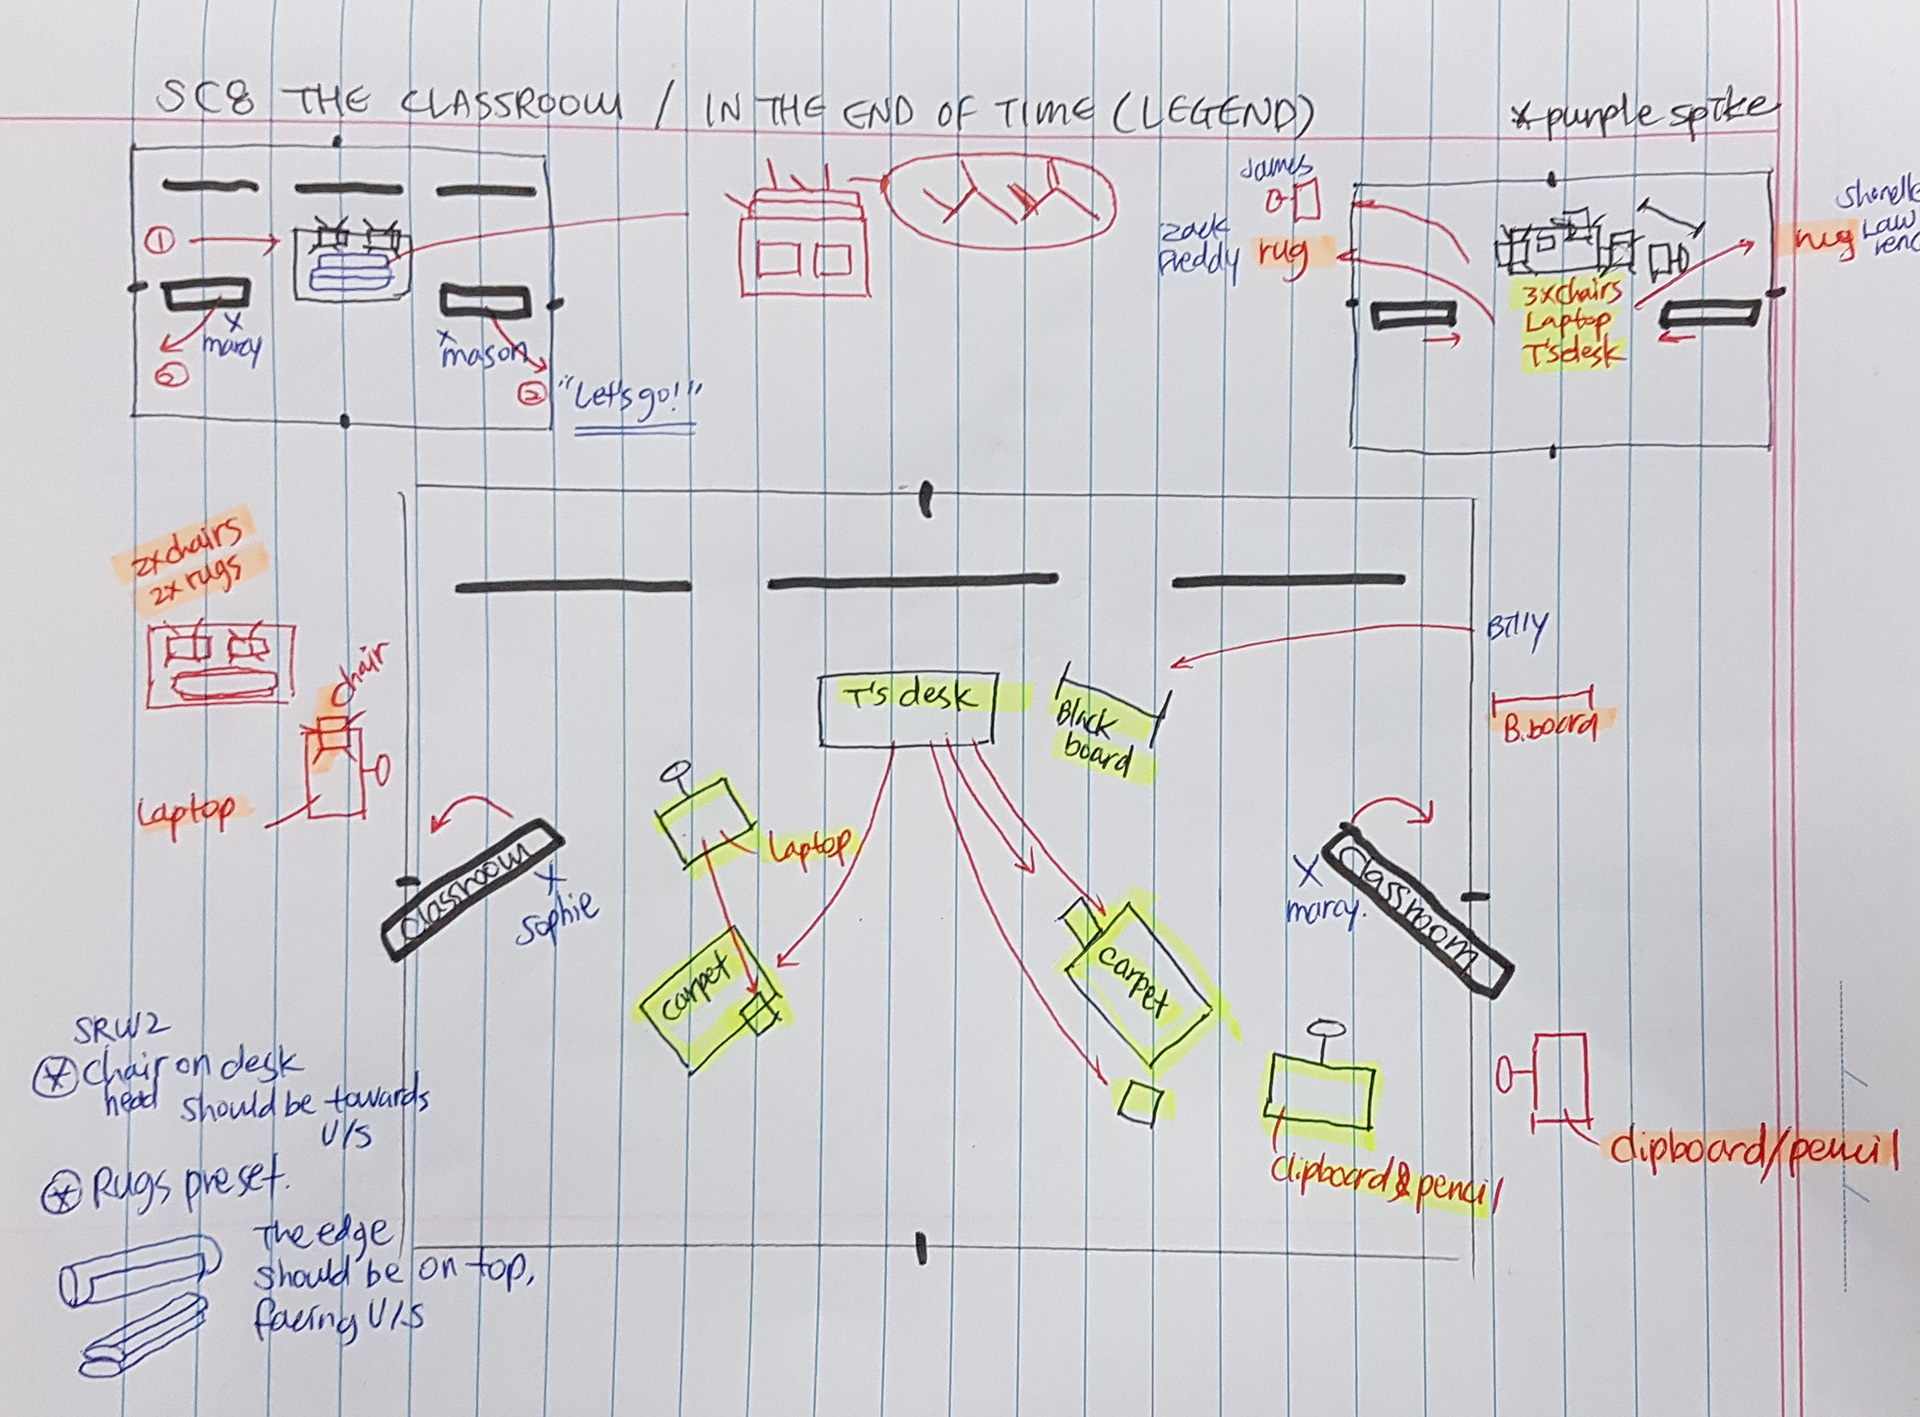 SC8 THE CLASSROOM / IN THE END OF TIME (LEGEND)
* purple spike
①
②
x
marcy
x
mason
②
"Let's go!!"
James
zack
Freddy
rug
3xchairs
Laptop
T's desk
rug
Law
2xchairs
2x rugs
chair
Laptop
T's desk
Black
board
Billy
B.board
Laptop
classroom
x
sophie
carpet
carpet
x
marcy.
classroom
clipboard & pencil
clipboard/pencil
SRW2
* Chair on desk
head should be towards
U/S
* Rugs preset.
The edge
should be on top,
facing U/S